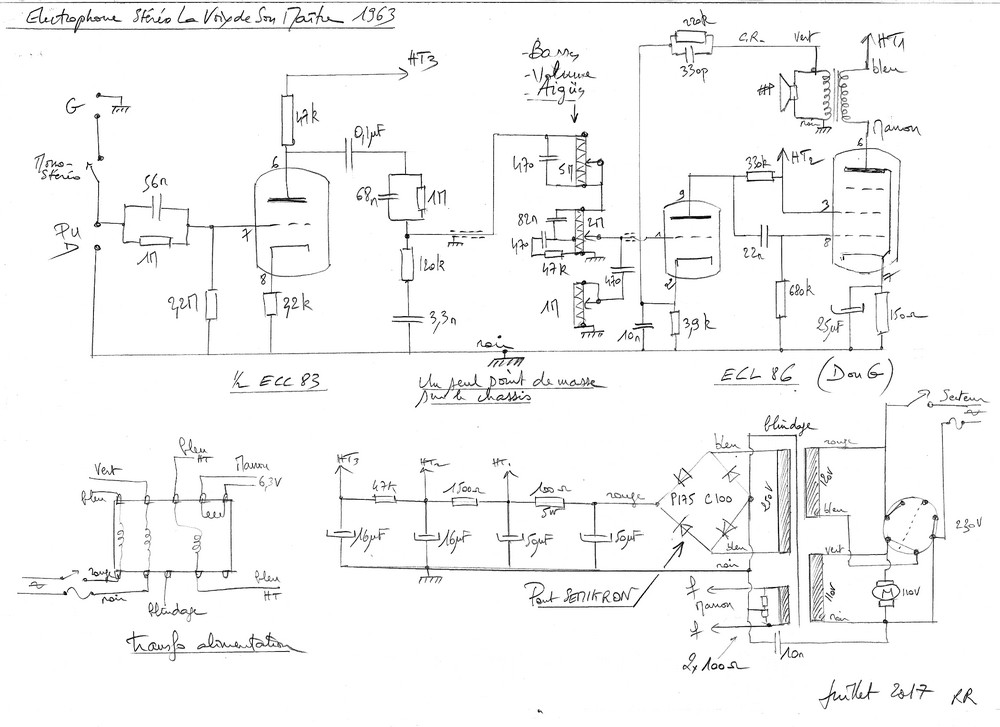 Electrophone Stéréo La Voix de Son Maître 1963
220k
C.R.
vert
HT1
330p
bleu
HT3
- Basses
- Volume
- Aigües
HP
noir
Marron
G
47k
0,1µF
Mono-
Stéréo
6
470
5M
330k
HT2
6
56n
68n
1M
9
3
Pu
7
82n
2M
1
8
1M
470
47k
22n
120k
470
8
2
7
2,2M
2,2k
1M
680k
3,3n
10n
3,9k
25µF
150Ω
noir
½ ECC 83
Un seul point de masse
sur le chassis
ECL 86
(Don G)
Secteur
blindage
bleu
HT
Vert
Marron
6,3V
bleu
HT3
HT2
HT1
bleu
rouge
47k
1500Ω
100Ω
5W
rouge
P175 C100
250V
120V
bleu
230V
16µF
16µF
50µF
50µF
bleu
noir
vert
rouge
noir
bleu
HT
blindage
Pont SEMIKRON
f
Marron
f
110V
M
110V
noir
transfo alimentation
2x100Ω
10n
Juillet 2017 RR